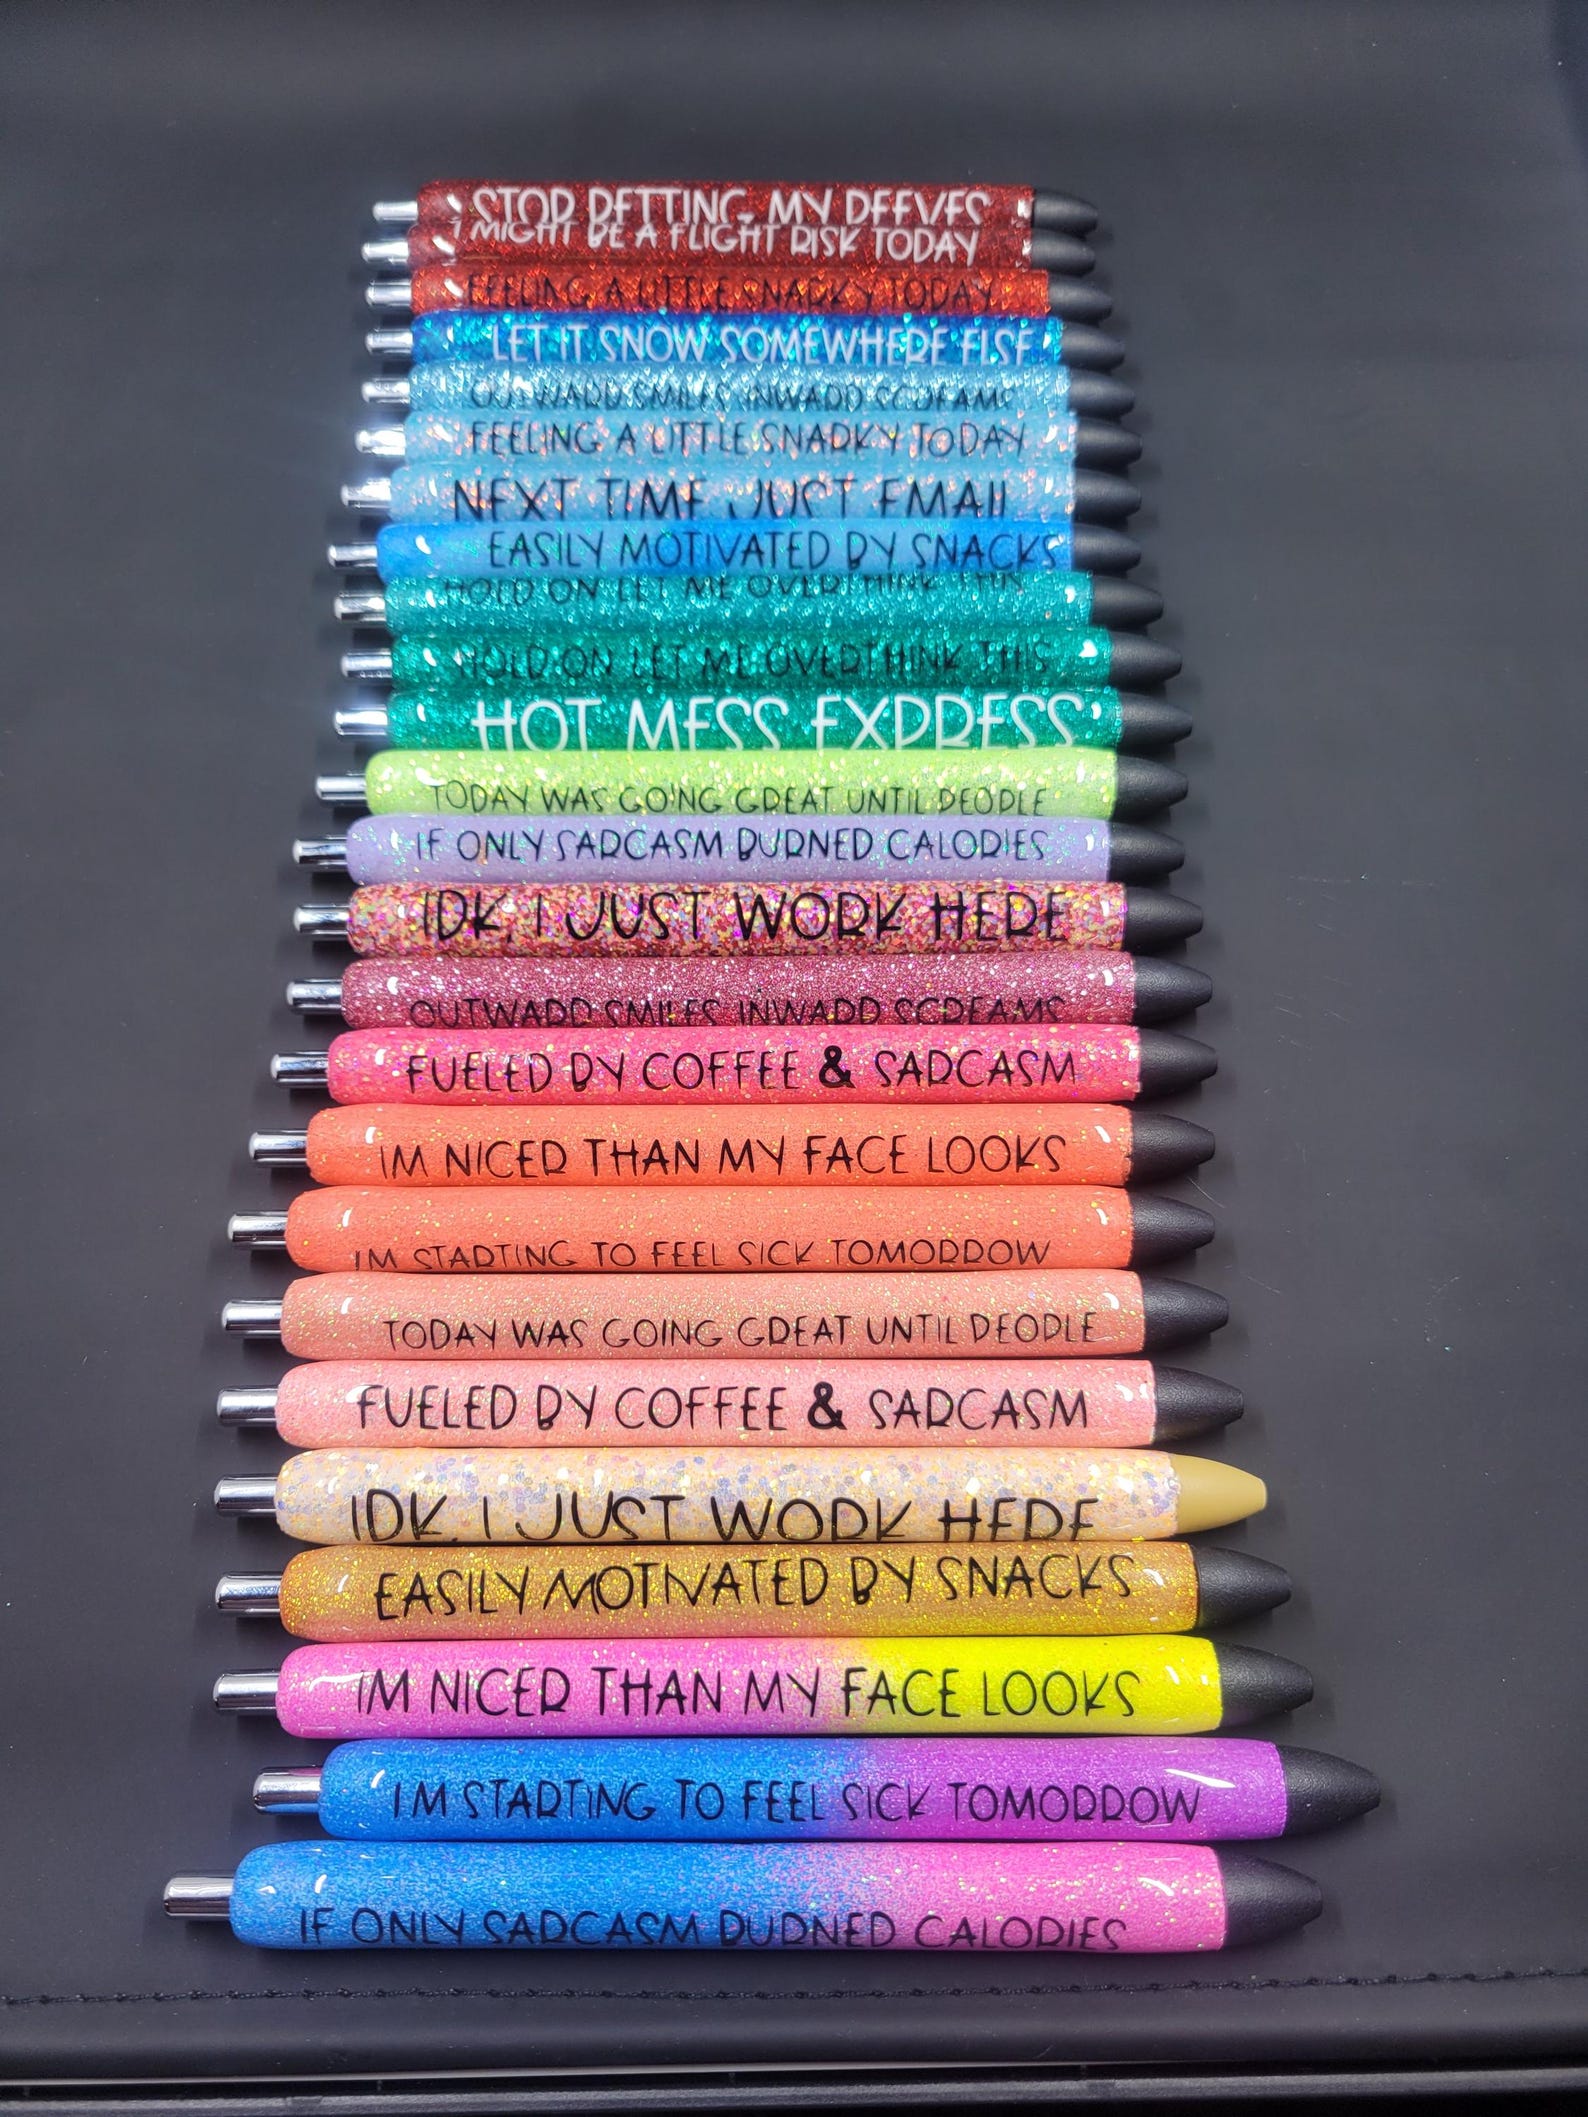 STOP PETTING MY PEEVES
I MIGHT BE A FLIGHT RISK TODAY
FEELING A LITTLE SNARKY TODAY
LET IT SNOW SOMEWHERE ELSE
OUTWARD SMILES INWARD SCREAMS
FEELING A LITTLE SNARKY TODAY
NEXT TIME JUST EMAIL
EASILY MOTIVATED BY SNACKS
HOLD ON LET ME OVERTHINK THIS
HOLD ON LET ME OVERTHINK THIS
HOT MESS EXPRESS
TODAY WAS GOING GREAT UNTIL PEOPLE
IF ONLY SARCASM BURNED CALORIES
IDK, I JUST WORK HERE
OUTWARD SMILES INWARD SCREAMS
FUELED BY COFFEE & SARCASM
IM NICER THAN MY FACE LOOKS
IM STARTING TO FEEL SICK TOMORROW
TODAY WAS GOING GREAT UNTIL PEOPLE
FUELED BY COFFEE & SARCASM
IDK, I JUST WORK HERE
EASILY MOTIVATED BY SNACKS
IM NICER THAN MY FACE LOOKS
IM STARTING TO FEEL SICK TOMORROW
IF ONLY SARCASM BURNED CALORIES